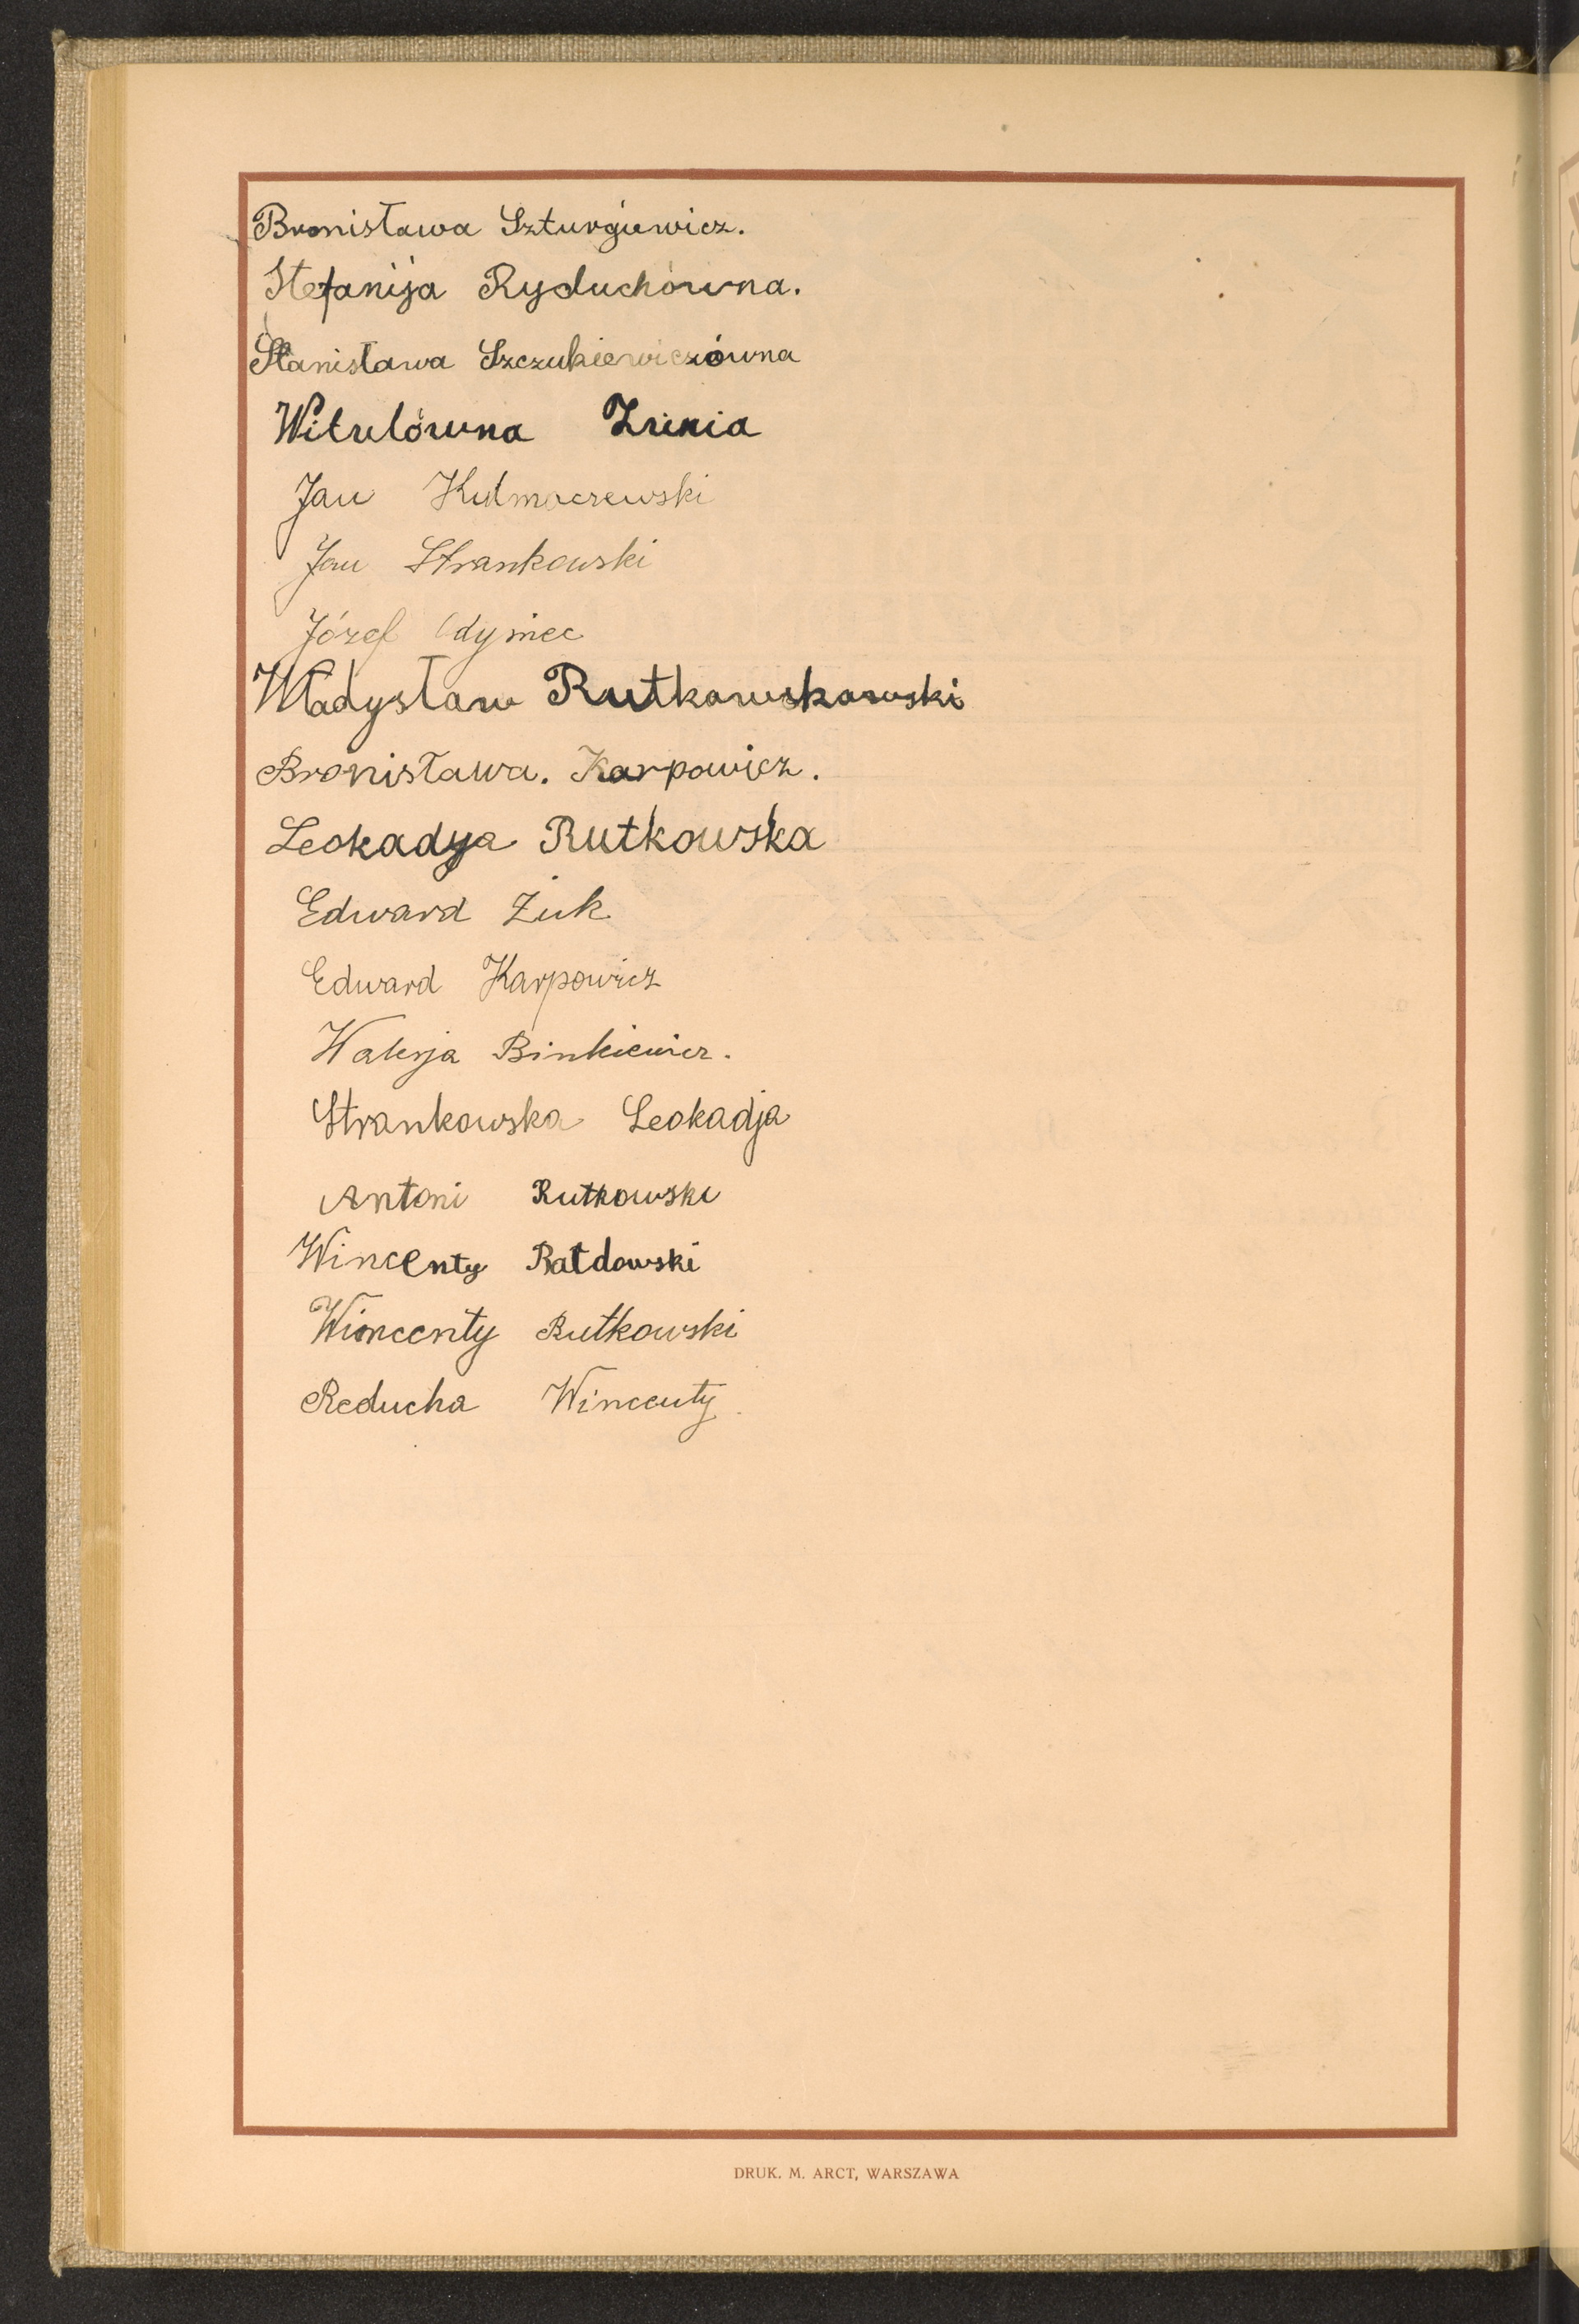 Bronisława Szturgiewicz.
Stefanija Ryduchówna.
Stanisława Szczukiewiczówna
Witulówna
Jan Kulmaczewski
Jan Strankowski
Józef Odyniec
Władysław Rutkowskowski
Bronisława. Karpowicz.
Leokadya Rutkowska
Edward Żuk
Edward Karpowicz
Walerja Binkiewicz.
Strankowska Leokadja
Antoni Rutkowski
Wincenty Ratdowski
Wincenty Rutkowski
Reducha Wincenty
DRUK. M. ARCT, WARSZAWA